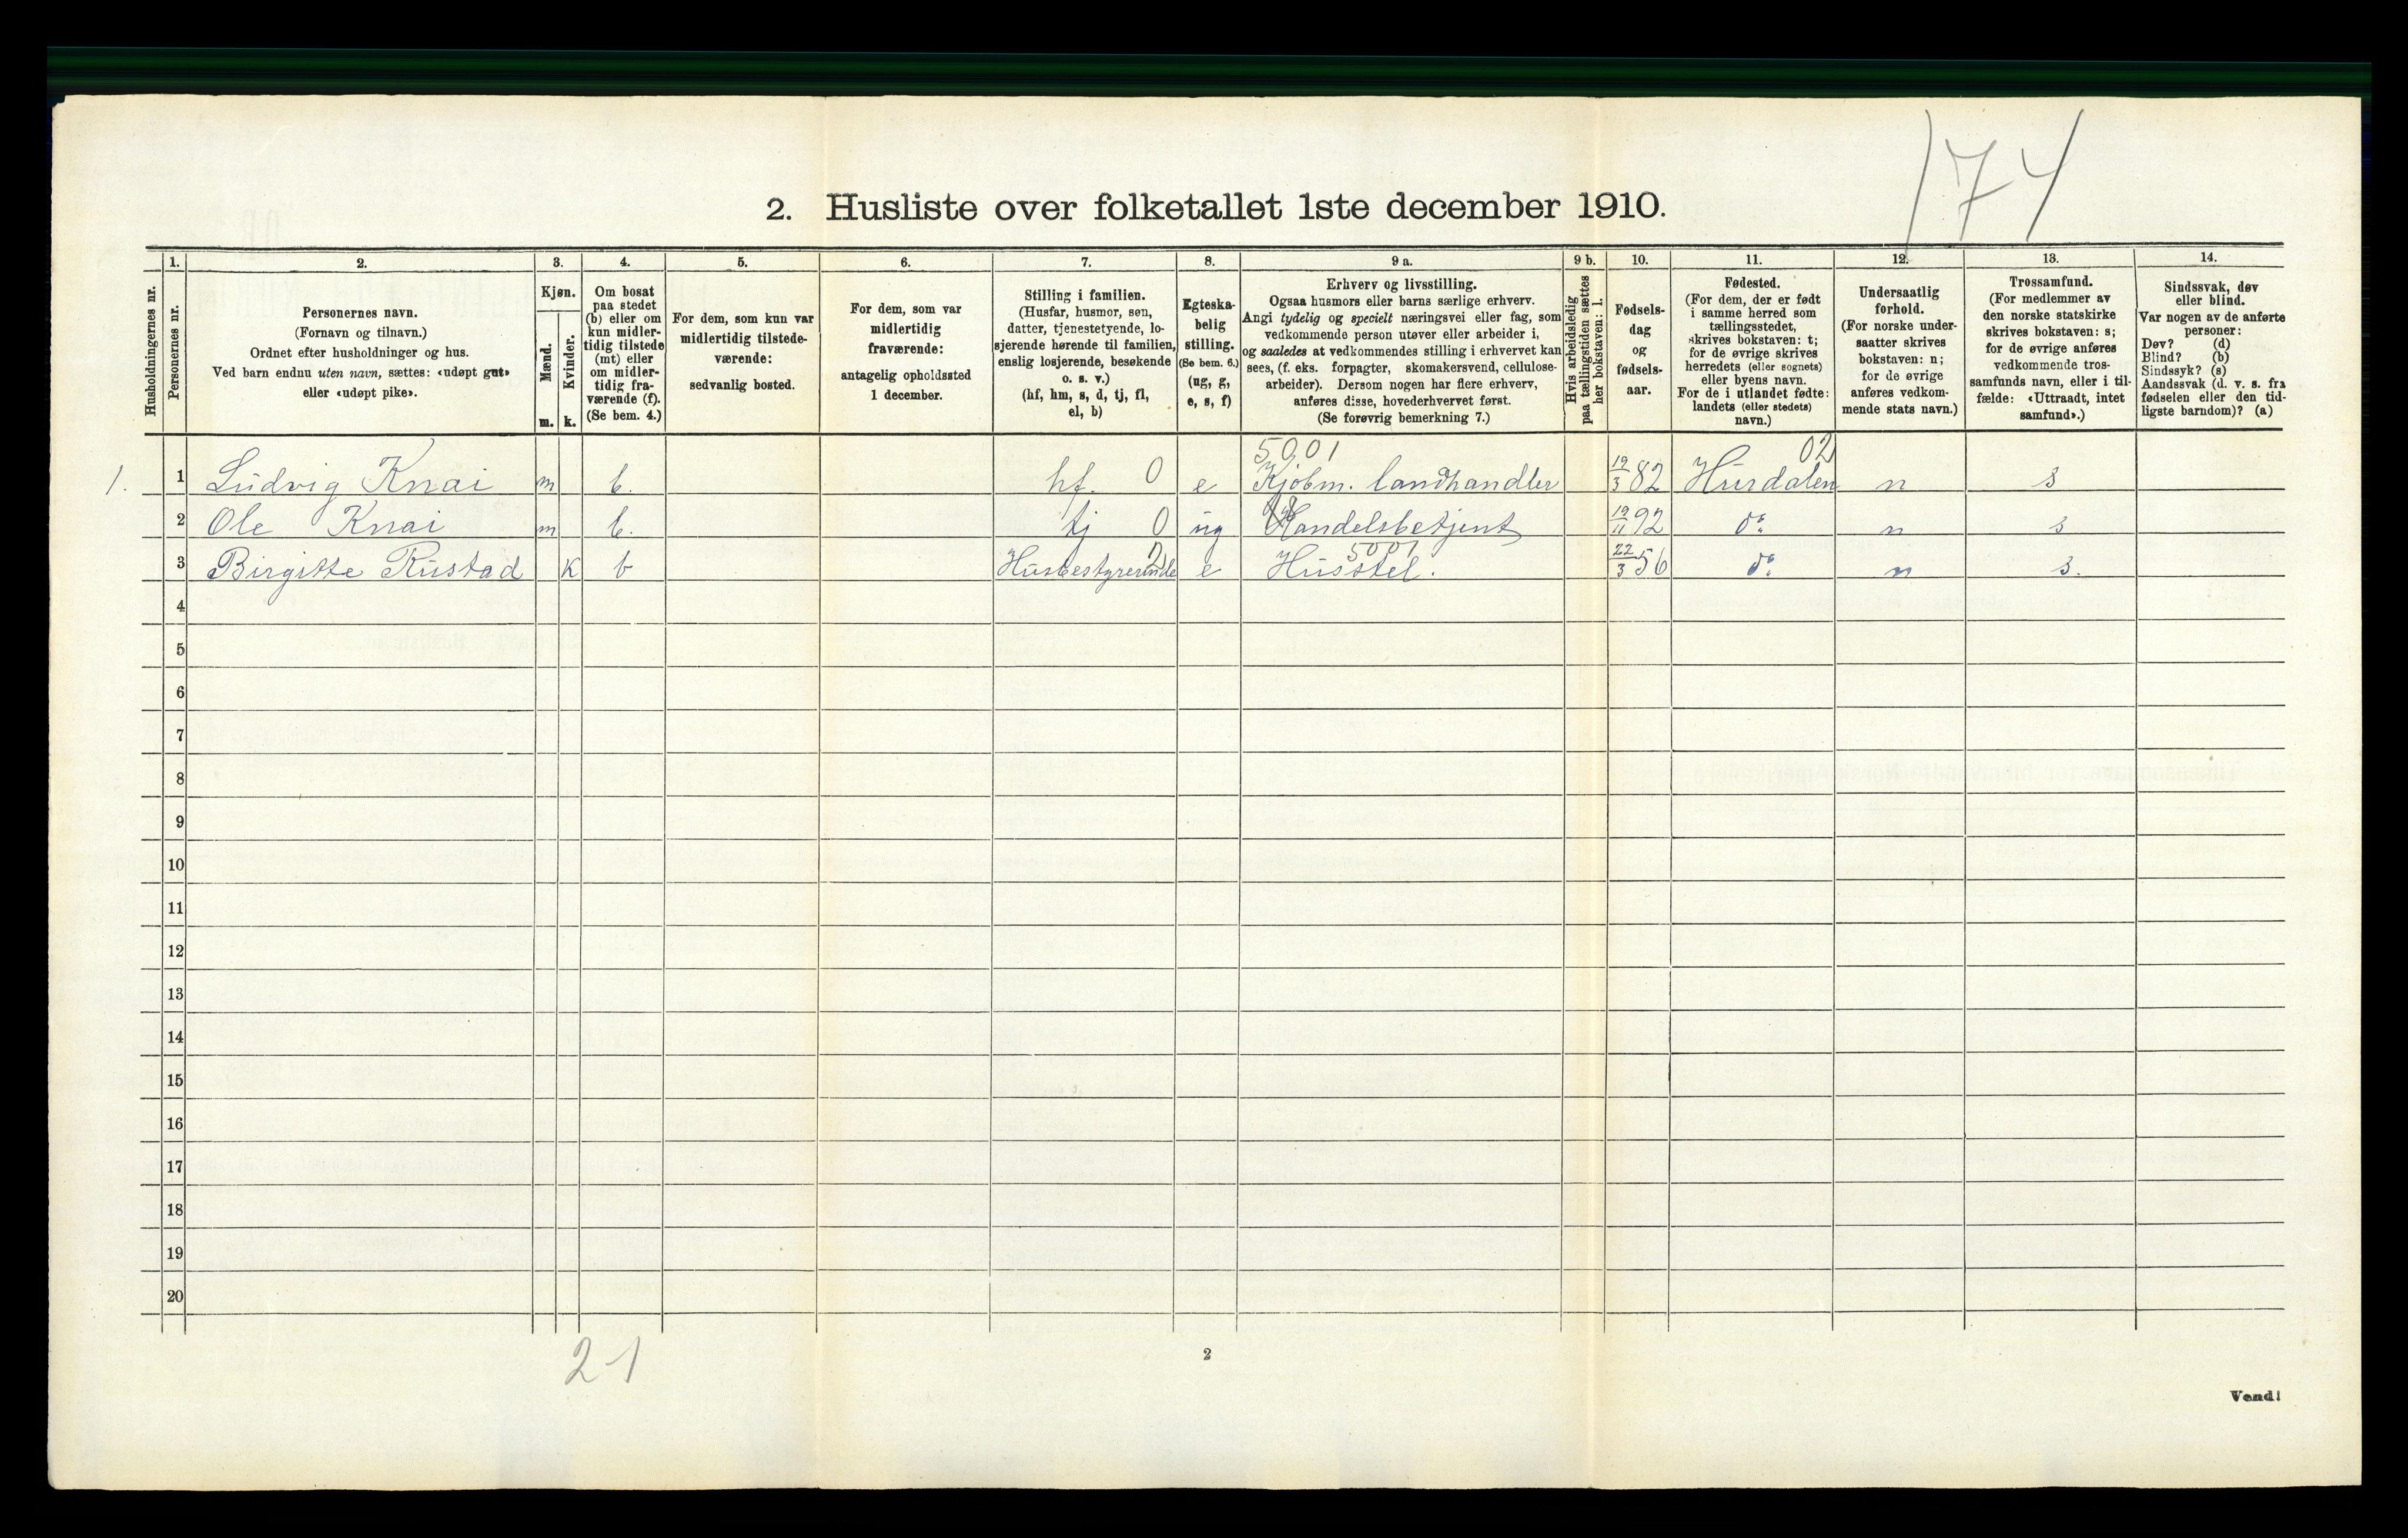 174
2. Husliste over folketallet 1ste december 1910.
Husholdningernes nr.
1.
Personernes nr.
2.
Personernes navn.
(Fornavn og tilnavn.)
Ordnet efter husholdninger og hus.
Ved barn endnu uten navn, sættes: «udøpt gut»
eller «udøpt pike».
3.
Kjøn.
Mænd.
Kvinder.
m. k.
4.
Om bosat
paa stedet
(b) eller om
kun midler-
tidig tilstede
(mt) eller
om midler-
tidig fra-
værende (f).
(Se bem. 4.)
5.
For dem, som kun var
midlertidig tilstede-
værende:
sedvanlig bosted.
6.
For dem, som var
midlertidig
fraværende:
antagelig opholdssted
1 december.
7.
Stilling i familien.
(Husfar, husmor, søn,
datter, tjenestetyende, lo-
sjerende hørende til familien,
enslig losjerende, besøkende
o. s. v.)
(hf, hm, s, d, tj, fl,
el, b)
8.
Egteska-
belig
stilling.
(Se bem. 6.)
(ug, g,
e, s, f)
9 a.
Erhverv og livsstilling.
Ogsaa husmors eller barns særlige erhverv.
Angi tydelig og specielt næringsvei eller fag, som
vedkommende person utøver eller arbeider i,
og saaledes at vedkommendes stilling i erhvervet kan
sees, (f. eks. forpagter, skomakersvend, cellulose-
arbeider). Dersom nogen har flere erhverv,
anføres disse, hovederhvervet først.
(Se forøvrig bemerkning 7.)
9 b.
Hvis arbeidsledig
paa tællingstiden sættes
her bokstaven: l.
10.
Fødsels-
dag
og
fødsels-
aar.
11.
Fødested.
(For dem, der er født
i samme herred som
tællingsstedet,
skrives bokstaven: t;
for de øvrige skrives
herredets (eller sognets)
eller byens navn.
For de i utlandet fødte:
landets (eller stedets)
navn.)
12.
Undersaatlig
forhold.
(For norske under-
saatter skrives
bokstaven: n;
for de øvrige
anføres vedkom-
mende stats navn.)
13.
Trossamfund.
(For medlemmer av
den norske statskirke
skrives bokstaven: s;
for de øvrige anføres
vedkommende tros-
samfunds navn, eller i til-
fælde: «Uttraadt, intet
samfund».)
14.
Sindssvak, døv
eller blind.
Var nogen av de anførte
personer:
Døv? (d)
Blind? (b)
Sindssyk? (s)
Aandssvak (d. v. s. fra
fødselen eller den tid-
ligste barndom)? (a)
5001 02
1. 1 Ludvig Knai m b. hf. 0 e Kjøbm. landhandler 19/3 82 Hurdalen n s
2 Ole Knai m b. tj 0 ug Handelsbetjent 19/11 92 do n s
5001
3 Birgitte Rustad k b Husbestyrerinde e Husstel. 22/3 56 do n s.
4
5
6
7
8
9
10
11
12
13
14
15
16
17
18
19
20
2-1
2
Vend!